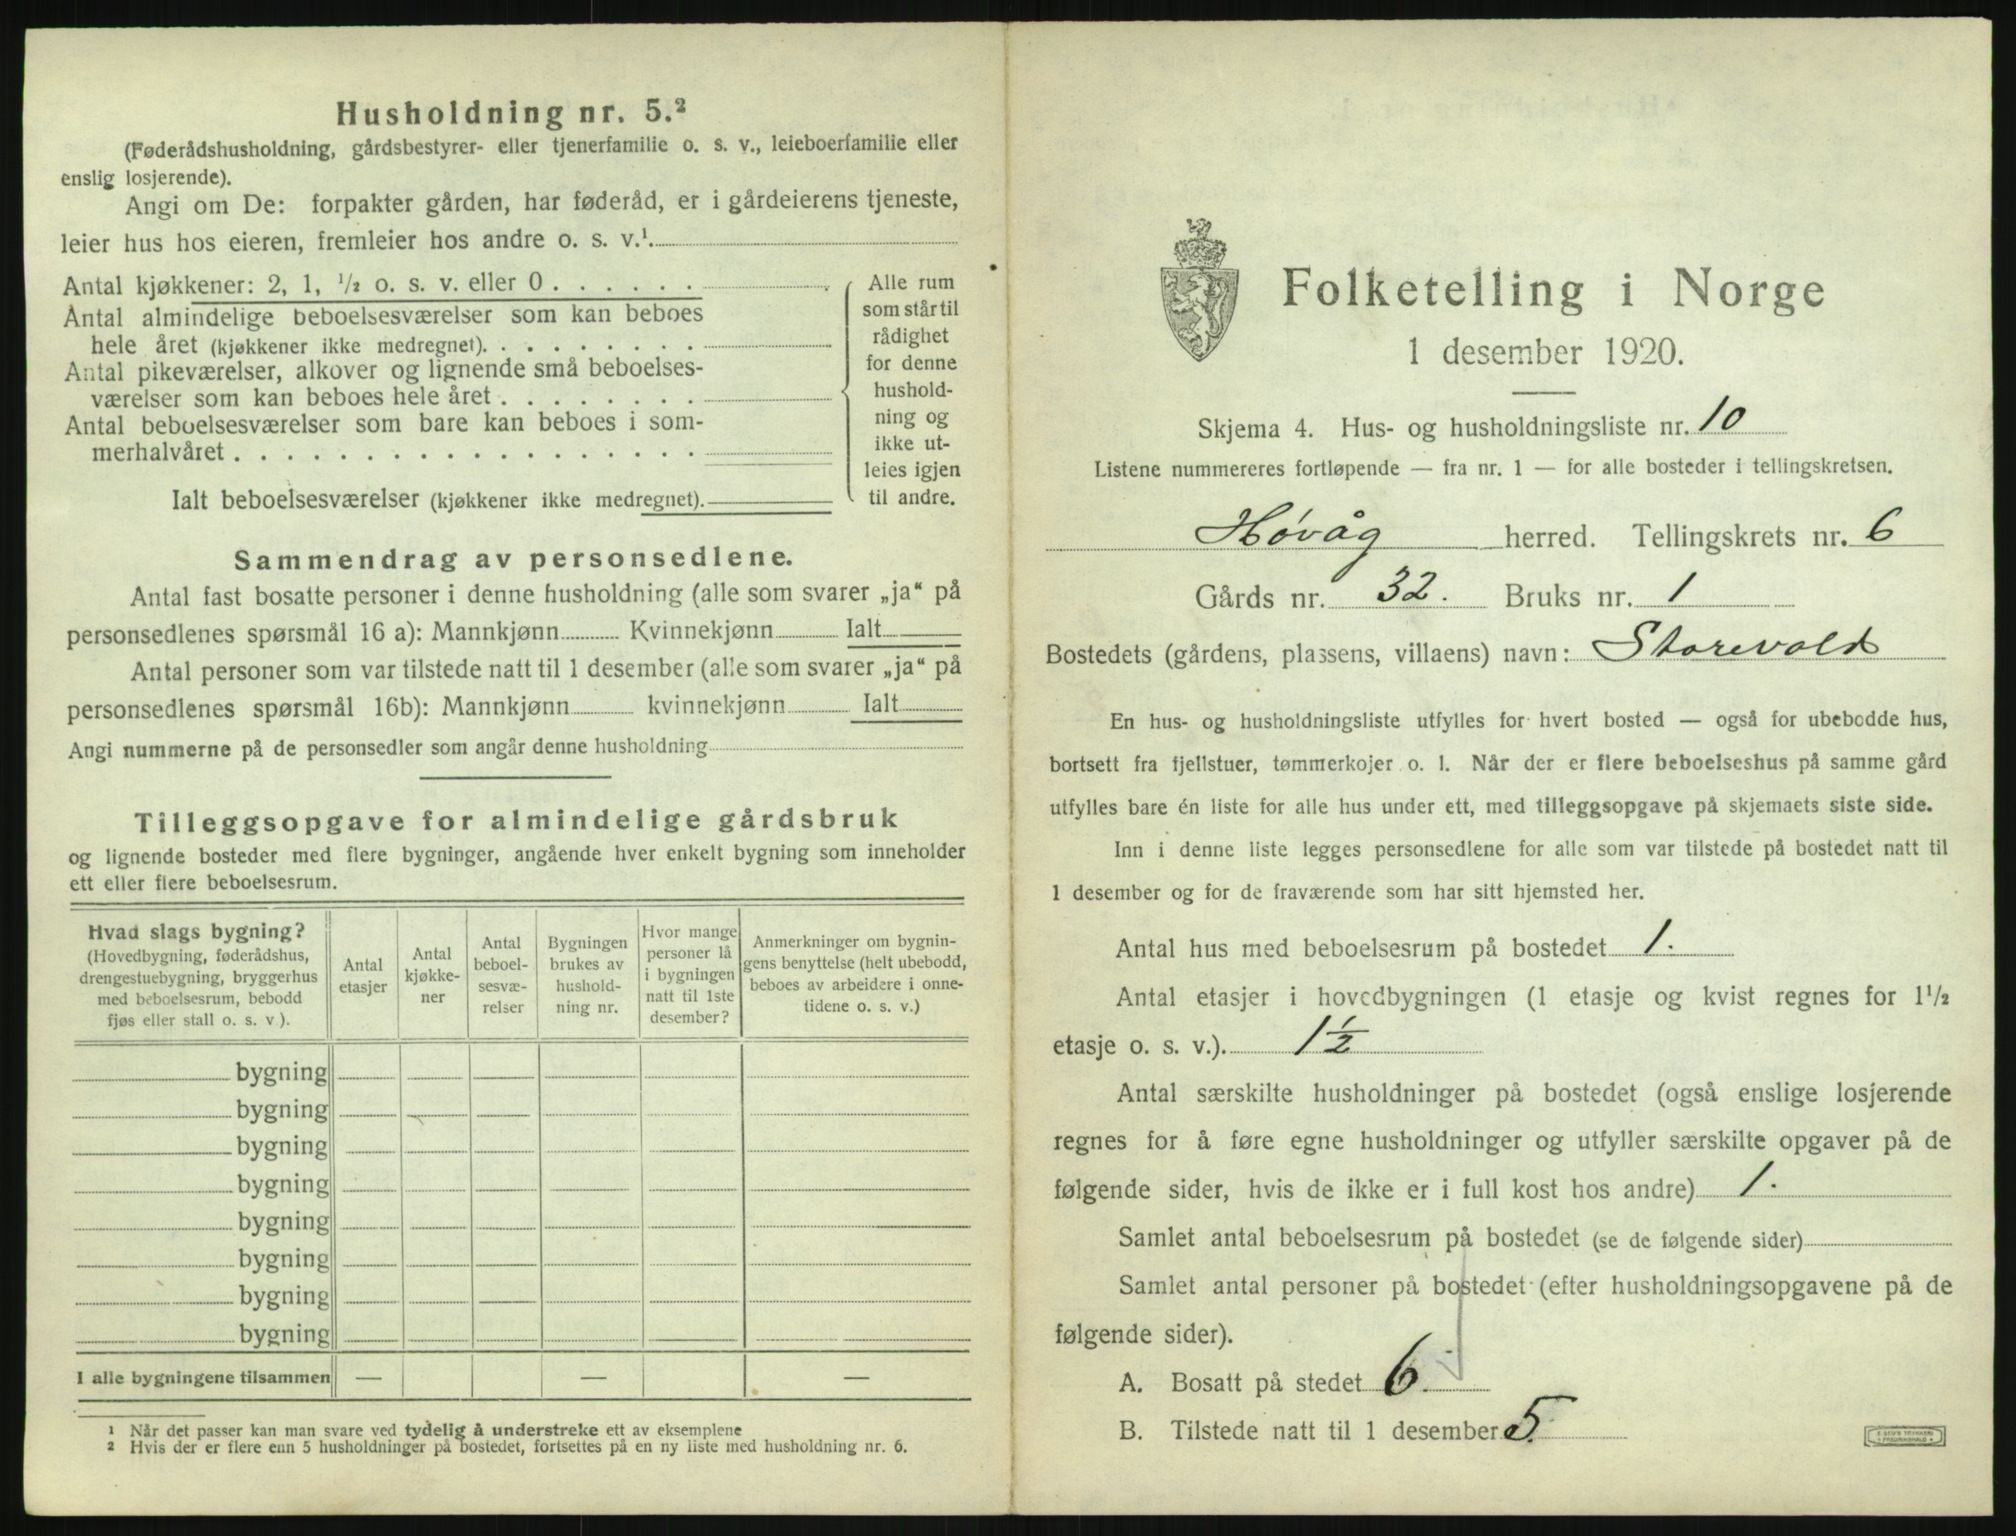 Husholdning nr. 5.²
(Føderådshusholdning, gårdsbestyrer- eller tjenerfamilie o. s. v., leieboerfamilie eller
enslig losjerende).
Angi om De: forpakter gården, har føderåd, er i gårdeierens tjeneste,
leier hus hos eieren, fremleier hos andre o. s. v.¹
Antal kjøkkener: 2, 1, ½ o. s. v. eller 0 . . . . . .
Antal almindelige beboelsesværelser som kan beboes
hele året (kjøkkener ikke medregnet). . . . . . . . .
Antal pikeværelser, alkover og lignende små beboelses-
værelser som kan beboes hele året . . . . . . . .
Antal beboelsesværelser som bare kan beboes i som-
merhalvåret . . . . . . . . . . . . . . . . . .
Ialt beboelsesværelser (kjøkkener ikke medregnet).
Alle rum
som står til
rådighet
for denne
hushold-
ning og
ikke ut-
leies igjen
til andre.
Sammendrag av personsedlene.
Antal fast bosatte personer i denne husholdning (alle som svarer „ja“ på
personsedlenes spørsmål 16 a): Mannkjønn Kvinnekjønn Ialt
Antal personer som var tilstede natt til 1 desember (alle som svarer „ja“ på
personsedlenes spørsmål 16b): Mannkjønn kvinnekjønn Ialt
Angi nummerne på de personsedler som angår denne husholdning
Tilleggsopgave for almindelige gårdsbruk
og lignende bosteder med flere bygninger, angående hver enkelt bygning som inneholder
ett eller flere beboelsesrum.
Hvad slags bygning?
(Hovedbygning, føderådshus,
drengestuebygning, bryggerhus
med beboelsesrum, bebodd
fjøs eller stall o. s. v.).
Antal
etasjer
Antal
kjøkke-
ner
Antal
beboel-
sesvæ-
relser
Bygningen
brukes av
hushold-
ning nr.
Hvor mange
personer lå
i bygningen
natt til 1ste
desember?
Anmerkninger om bygnin-
gens benyttelse (helt ubebodd,
beboes av arbeidere i onne-
tidene o. s. v.)
bygning
bygning
bygning
bygning
bygning
bygning
bygning
bygning
I alle bygningene tilsammen — — —
¹ Når det passer kan man svare ved tydelig å understreke ett av eksemplene
² Hvis der er flere enn 5 husholdninger på bostedet, fortsettes på en ny liste med husholdning nr. 6.
Folketelling i Norge
1 desember 1920.
Skjema 4. Hus- og husholdningsliste nr. 10
Listene nummereres fortløpende — fra nr. 1 — for alle bosteder i tellingskretsen.
Høvåg herred. Tellingskrets nr. 6
Gårds nr. 32. Bruks nr. 1
Bostedets (gårdens, plassens, villaens) navn: Storevold
En hus- og husholdningsliste utfylles for hvert bosted — også for ubebodde hus,
bortsett fra fjellstuer, tømmerkojer o. l. Når der er flere beboelseshus på samme gård
utfylles bare én liste for alle hus under ett, med tilleggsopgave på skjemaets siste side.
Inn i denne liste legges personsedlene for alle som var tilstede på bostedet natt til
1 desember og for de fraværende som har sitt hjemsted her.
Antal hus med beboelsesrum på bostedet 1.
Antal etasjer i hovedbygningen (1 etasje og kvist regnes for 1½
etasje o. s. v.). 1½
Antal særskilte husholdninger på bostedet (også enslige losjerende
regnes for å føre egne husholdninger og utfyller særskilte opgaver på de
følgende sider, hvis de ikke er i full kost hos andre) 1.
Samlet antal beboelsesrum på bostedet (se de følgende sider)
Samlet antal personer på bostedet (efter husholdningsopgavene på de
følgende sider).
A. Bosatt på stedet 6.
B. Tilstede natt til 1 desember 5.